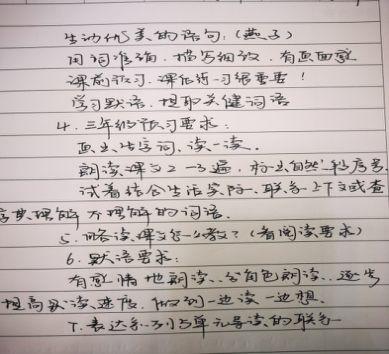 生动优美的语句:(燕子)
用词准确,描写细致,有画面感
课前预习、课后练习很重要!
学习默语,提取关键词语
4. 三年级预习要求:
画出生字词,读一读。
朗读课文2—3遍,标出自然段序号
试着结合生活实际、联系上下文或查
字典理解不理解的词语。
5. 略读课文怎么教?(看阅读要求)
6. 默语要求:
有感情地朗读、分角色朗读、逐步
提高默读速度,做到一边读一边想。
7. 表达系列与单元导读的联系